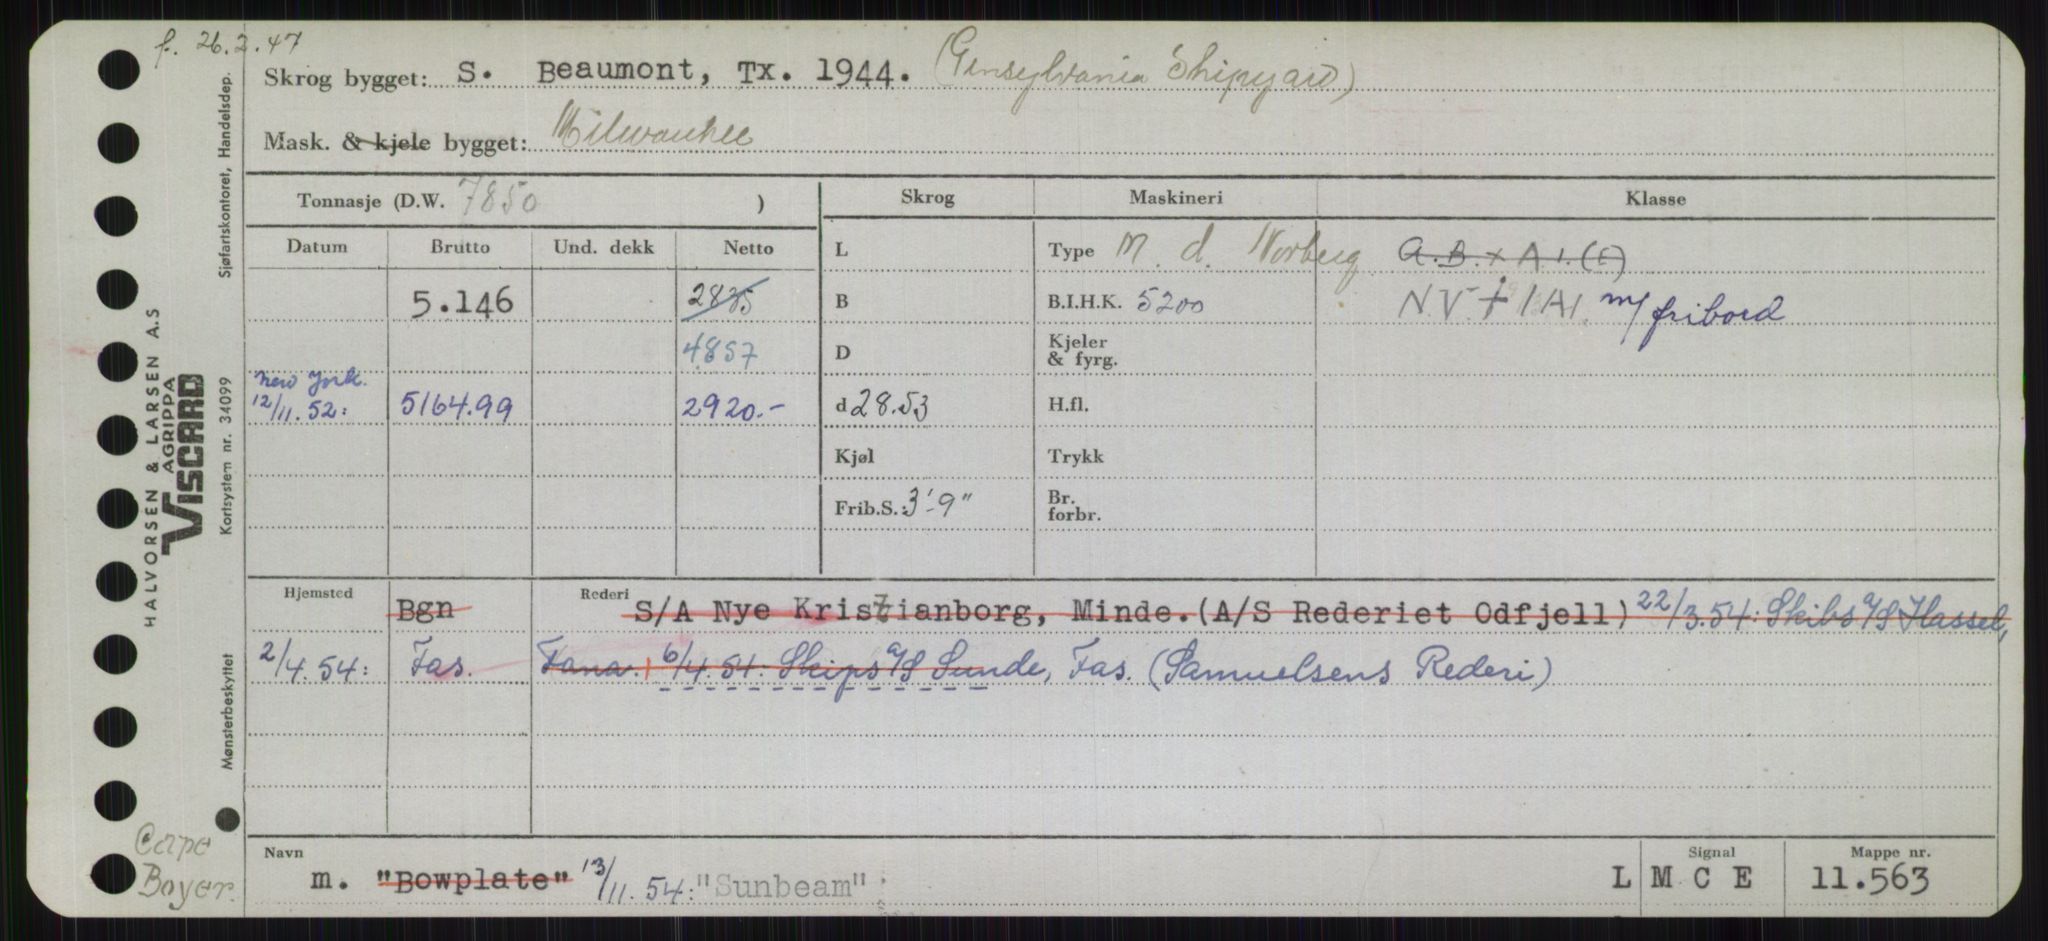 f. 26.2.47
Skrog bygget: S. Beaumont, Tx. 1944. (Pensylvania Shipyard)
Mask. & kjele bygget: Milwaukee
Tonnasje (D.W. 7850 )
Skrog Maskineri Klasse
Datum Brutto Und. dekk Netto
L Type M. d. Norberg A.B. + A.1.(E)
5.146 2835 B B.I.H.K. 5200 N.V. + 1A1. m/ fribord
4857 D Kjeler & fyrg.
New York.
12/11.52: 5164.99 2920.- d 28.53 H.fl.
Kjøl Trykk
Frib.S.: 3'-9" Br. forbr.
Hjemsted Rederi
Bgn S/A Nye Kristianborg, Minde. (A/S Rederiet Odfjell) 22/3.54: Skibs a/s Hassel,
2/4.54: Fas. Fana. 6/4.54: Skips a/s Sunde, Fas. (Samuelsens Rederi)
Navn Signal Mappe nr.
m. "Bowplate" 13/11.54: "Sunbeam" L M C E 11.563
Cape
Boyer.
HALVORSEN & LARSEN A.S
AGRIPPA
VISCARD
Sjøfartskontoret, Handelsdep.
Kortsystem nr. 34099
Mønsterbeskyttet